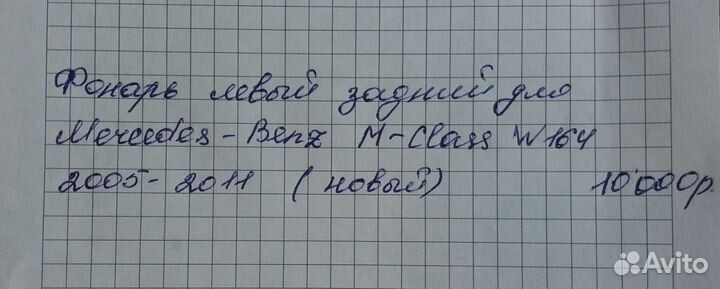 Фонарь левый задний для
Mercedes-Benz M-Class W164
2005-2011 (новый) 10'000р.
Avito